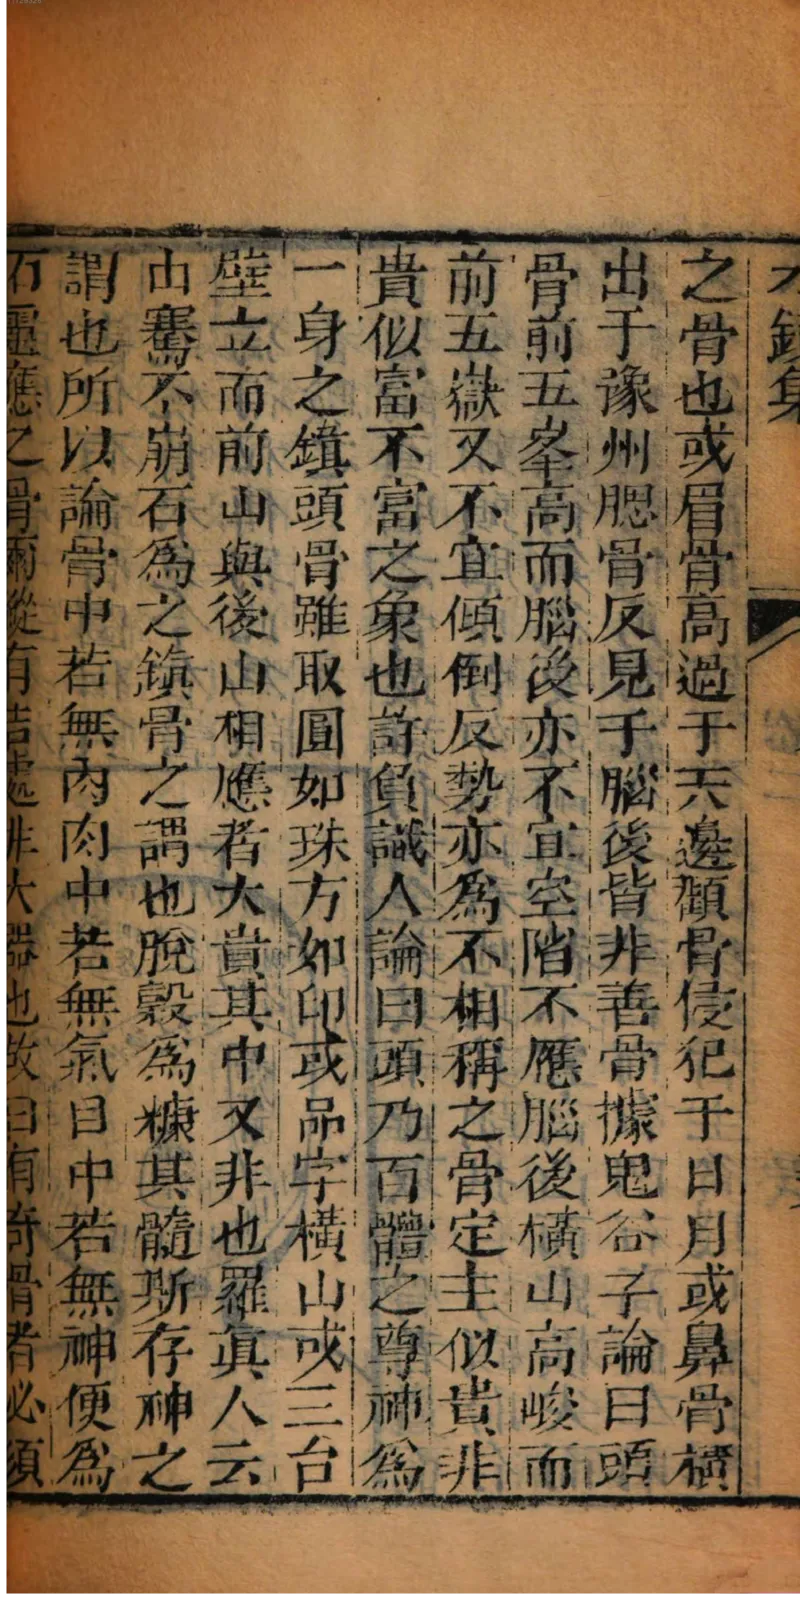 水鏡集
之骨也或眉骨高過于天邊顴骨侵犯于日月或鼻骨橫
出于豫州腮骨反見于腦後皆非善骨據鬼谷子論曰頭
骨前五峯高而腦後亦不宜空陷不應腦後橫山高峻而
前五嶽又不宜傾倒反勢亦爲不相稱之骨定主似貴非
貴似富不富之象也許負識人論曰頭乃百體之尊神爲
一身之鎮頭骨雖取圓如珠方如印或品字橫山或三台
壁立而前山與後山相應者大貴其中又非也羅真人云
山騫不崩石爲之鎮骨之謂也脫穀爲糠其髓斯存神之
謂也所以論骨中若無肉肉中若無氣目中若無神便爲
石靈應之骨爾縱有結處非大器也故曰有奇骨者必須